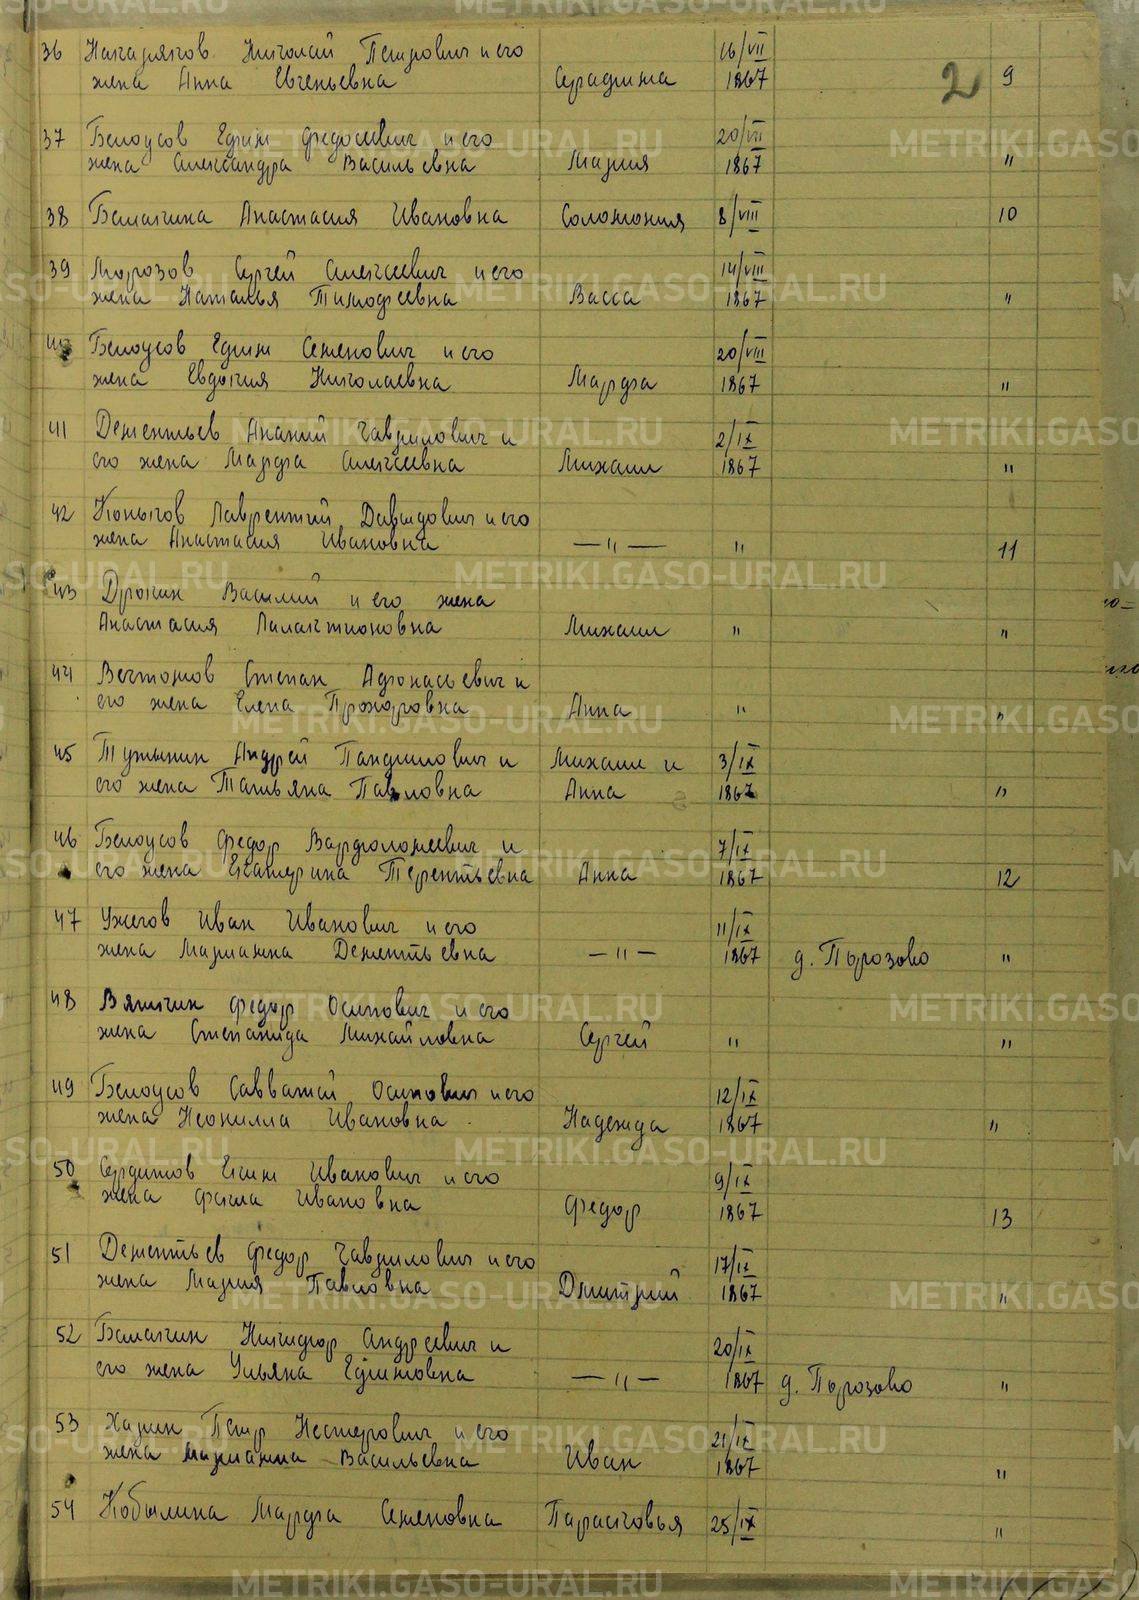 36 Николай Петрович и его 16/VII 2
жена Анна Евгеньевна Серафима 1867 9
37 Белоусов Ефим Федосеевич и его 20/VII
жена Александра Васильевна Мария 1867 "
38 Балакина Анастасия Ивановна Соломония 8/VIII 10
39 Морозов Сергей Алексеевич и его 14/VIII
жена Наталья Тимофеевна Васса 1867 "
Белоусов Ефим Семенович и его 20/VIII
жена Евдокия Николаевна Марфа 1867 "
41 Дементьев Ананий Гаврилович и 2/IX
его жена Марфа Алексеевна Михаил 1867 "
42 Конычов Лаврентий Давидович и его
жена Анастасия Ивановна — " — " 11
43 Дрокин Василий и его жена
Анастасия Галактионовна Михаил " "
44 Вектомов Степан Афонасьевич и
его жена Елена Прохоровна Анна " "
45 Тупынин Андрей Панфилович и Михаил и 3/IX
его жена Татьяна Павловна Анна 1867 "
46 Белоусов Федор Варфоломеевич и 7/IX
его жена Екатерина Терентьевна Анна 1867 12
47 Ужегов Иван Иванович и его 11/IX
жена Мариамна Дементьевна — " — 1867 д. Пырозово "
48 Вяткин Федор Осипович и его
жена Степанида Михайловна Сергей " "
49 Белоусов Савватий Осипович и его 12/IX
жена Неонилла Ивановна Надежда 1867 "
50 Сердитов Еким Иванович и его 9/IX
жена Фекла Ивановна Федор 1867 13
51 Дементьев Федор Гаврилович и его 17/IX
жена Мария Павловна Дмитрий 1867 "
52 Балакин Никифор Андреевич и 20/IX
его жена Ульяна Ефимовна — " — 1867 д. Пырозово "
53 Харин Петр Нестерович и его 21/IX
жена Мариамна Васильевна Иван 1867 "
54 Кобылина Марфа Семеновна Парасковья 25/IX "
METRIKI.GASO-URAL.RU